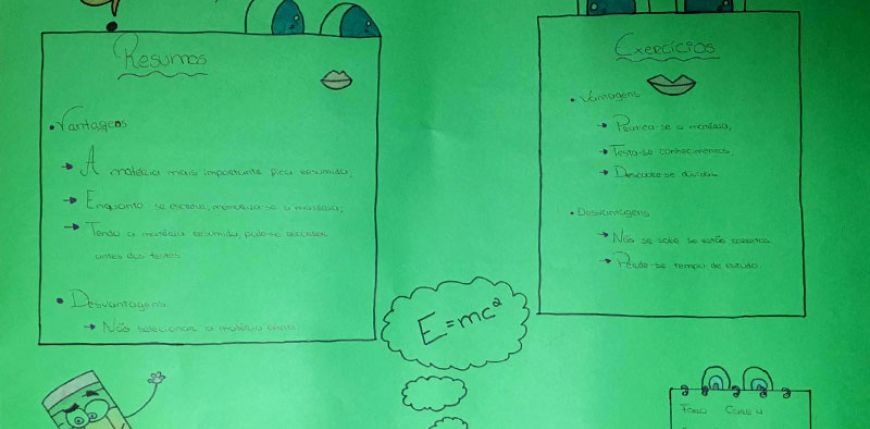 Resumos
• Vantagens
→ A matéria mais importante fica resumida;
→ Enquanto se escreve, memoriza-se a matéria;
→ Tendo a matéria resumida, pode-se recorrer
antes dos testes
• Desvantagens
→ Não selecionar a matéria certa
E=mc²
Exercícios
• Vantagens
→ Pratica-se a matéria;
→ Testa-se conhecimentos;
→ Descobre-se dúvidas
• Desvantagens
→ Não se sabe se estão corretos
→ Perde-se tempo de estudo.